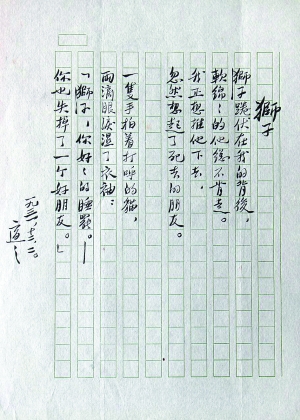 獅子
獅子踡伏在我的背後,
軟綿々的他總不肯走。
我正想推他下去,
忽然想起了死去的朋友。
一隻手拍着打呼的貓,
兩滴眼淚濕了衣袖:
「獅子,你好々的睡罷。——
你也失掉了一个好朋友。」
一九三一,十二,二。
適之